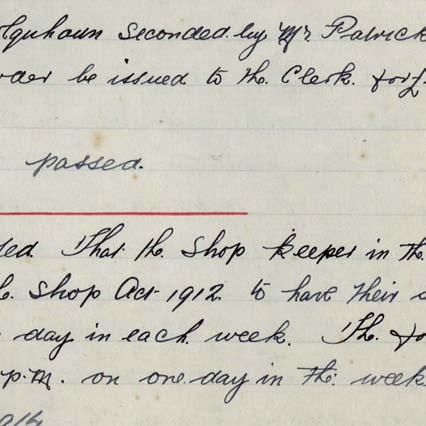 lquhoun Seconded by Mr. Patrick
rder be issued to the Clerk for £
passed.
sed. That the Shop Keeper in the
Shop Act 1912. to have their
day in each week. The fo
p.m. on one day in the week